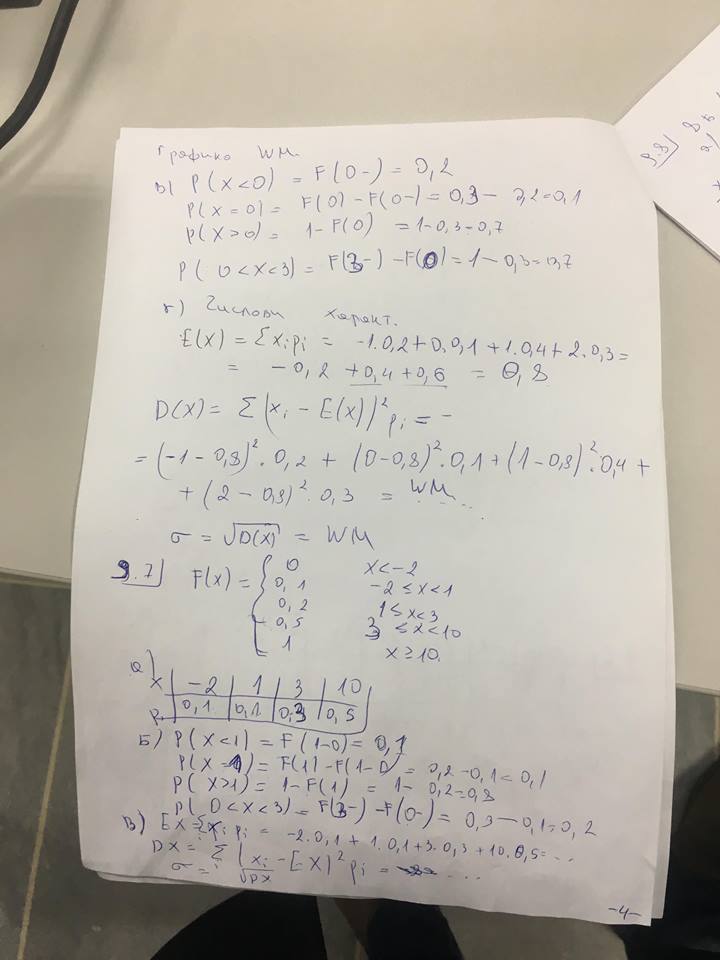 графика WM.
в) P(X<0) = F(0-) = 0,2
P(X=0) = F(0) - F(0-) = 0,3 - 0,2 = 0,1
P(X>0) = 1 - F(0) = 1 - 0,3 = 0,7
P(0<X<3) = F(3-) - F(0) = 1 - 0,3 = 0,7
г) Числови характ.
E(X) = Σxᵢpᵢ = -1.0,2 + 0.0,1 + 1.0,4 + 2.0,3 =
= -0,2 + 0,4 + 0,6 = 0,8
D(X) = Σ(xᵢ - E(X))² pᵢ = -
= (-1-0,8)².0,2 + (0-0,8)².0,1 + (1-0,8)².0,4 +
+ (2-0,8)².0,3 = WM...
σ = √D(X) = WM
9.7 F(x) = { 0 x<-2
0,1 -2≤x<1
0,2 1≤x<3
0,5 3≤x<10
1 x≥10.
а)
X | -2 | 1 | 3 | 10
P. | 0,1 | 0,1 | 0,3 | 0,5
Б) P(X<1) = F(1-0) = 0,1
P(X=1) = F(1) - F(1-0) = 0,2 - 0,1 = 0,1
P(X>1) = 1 - F(1) = 1 - 0,2 = 0,8
P(0<X<3) = F(3-) - F(0-) = 0,3 - 0,1 = 0,2
В) EX = Σxᵢpᵢ = -2.0,1 + 1.0,1 + 3.0,3 + 10.0,5 = ...
DX = Σ(xᵢ - EX)² pᵢ = ...
σ = √DX
-4-
9.8)